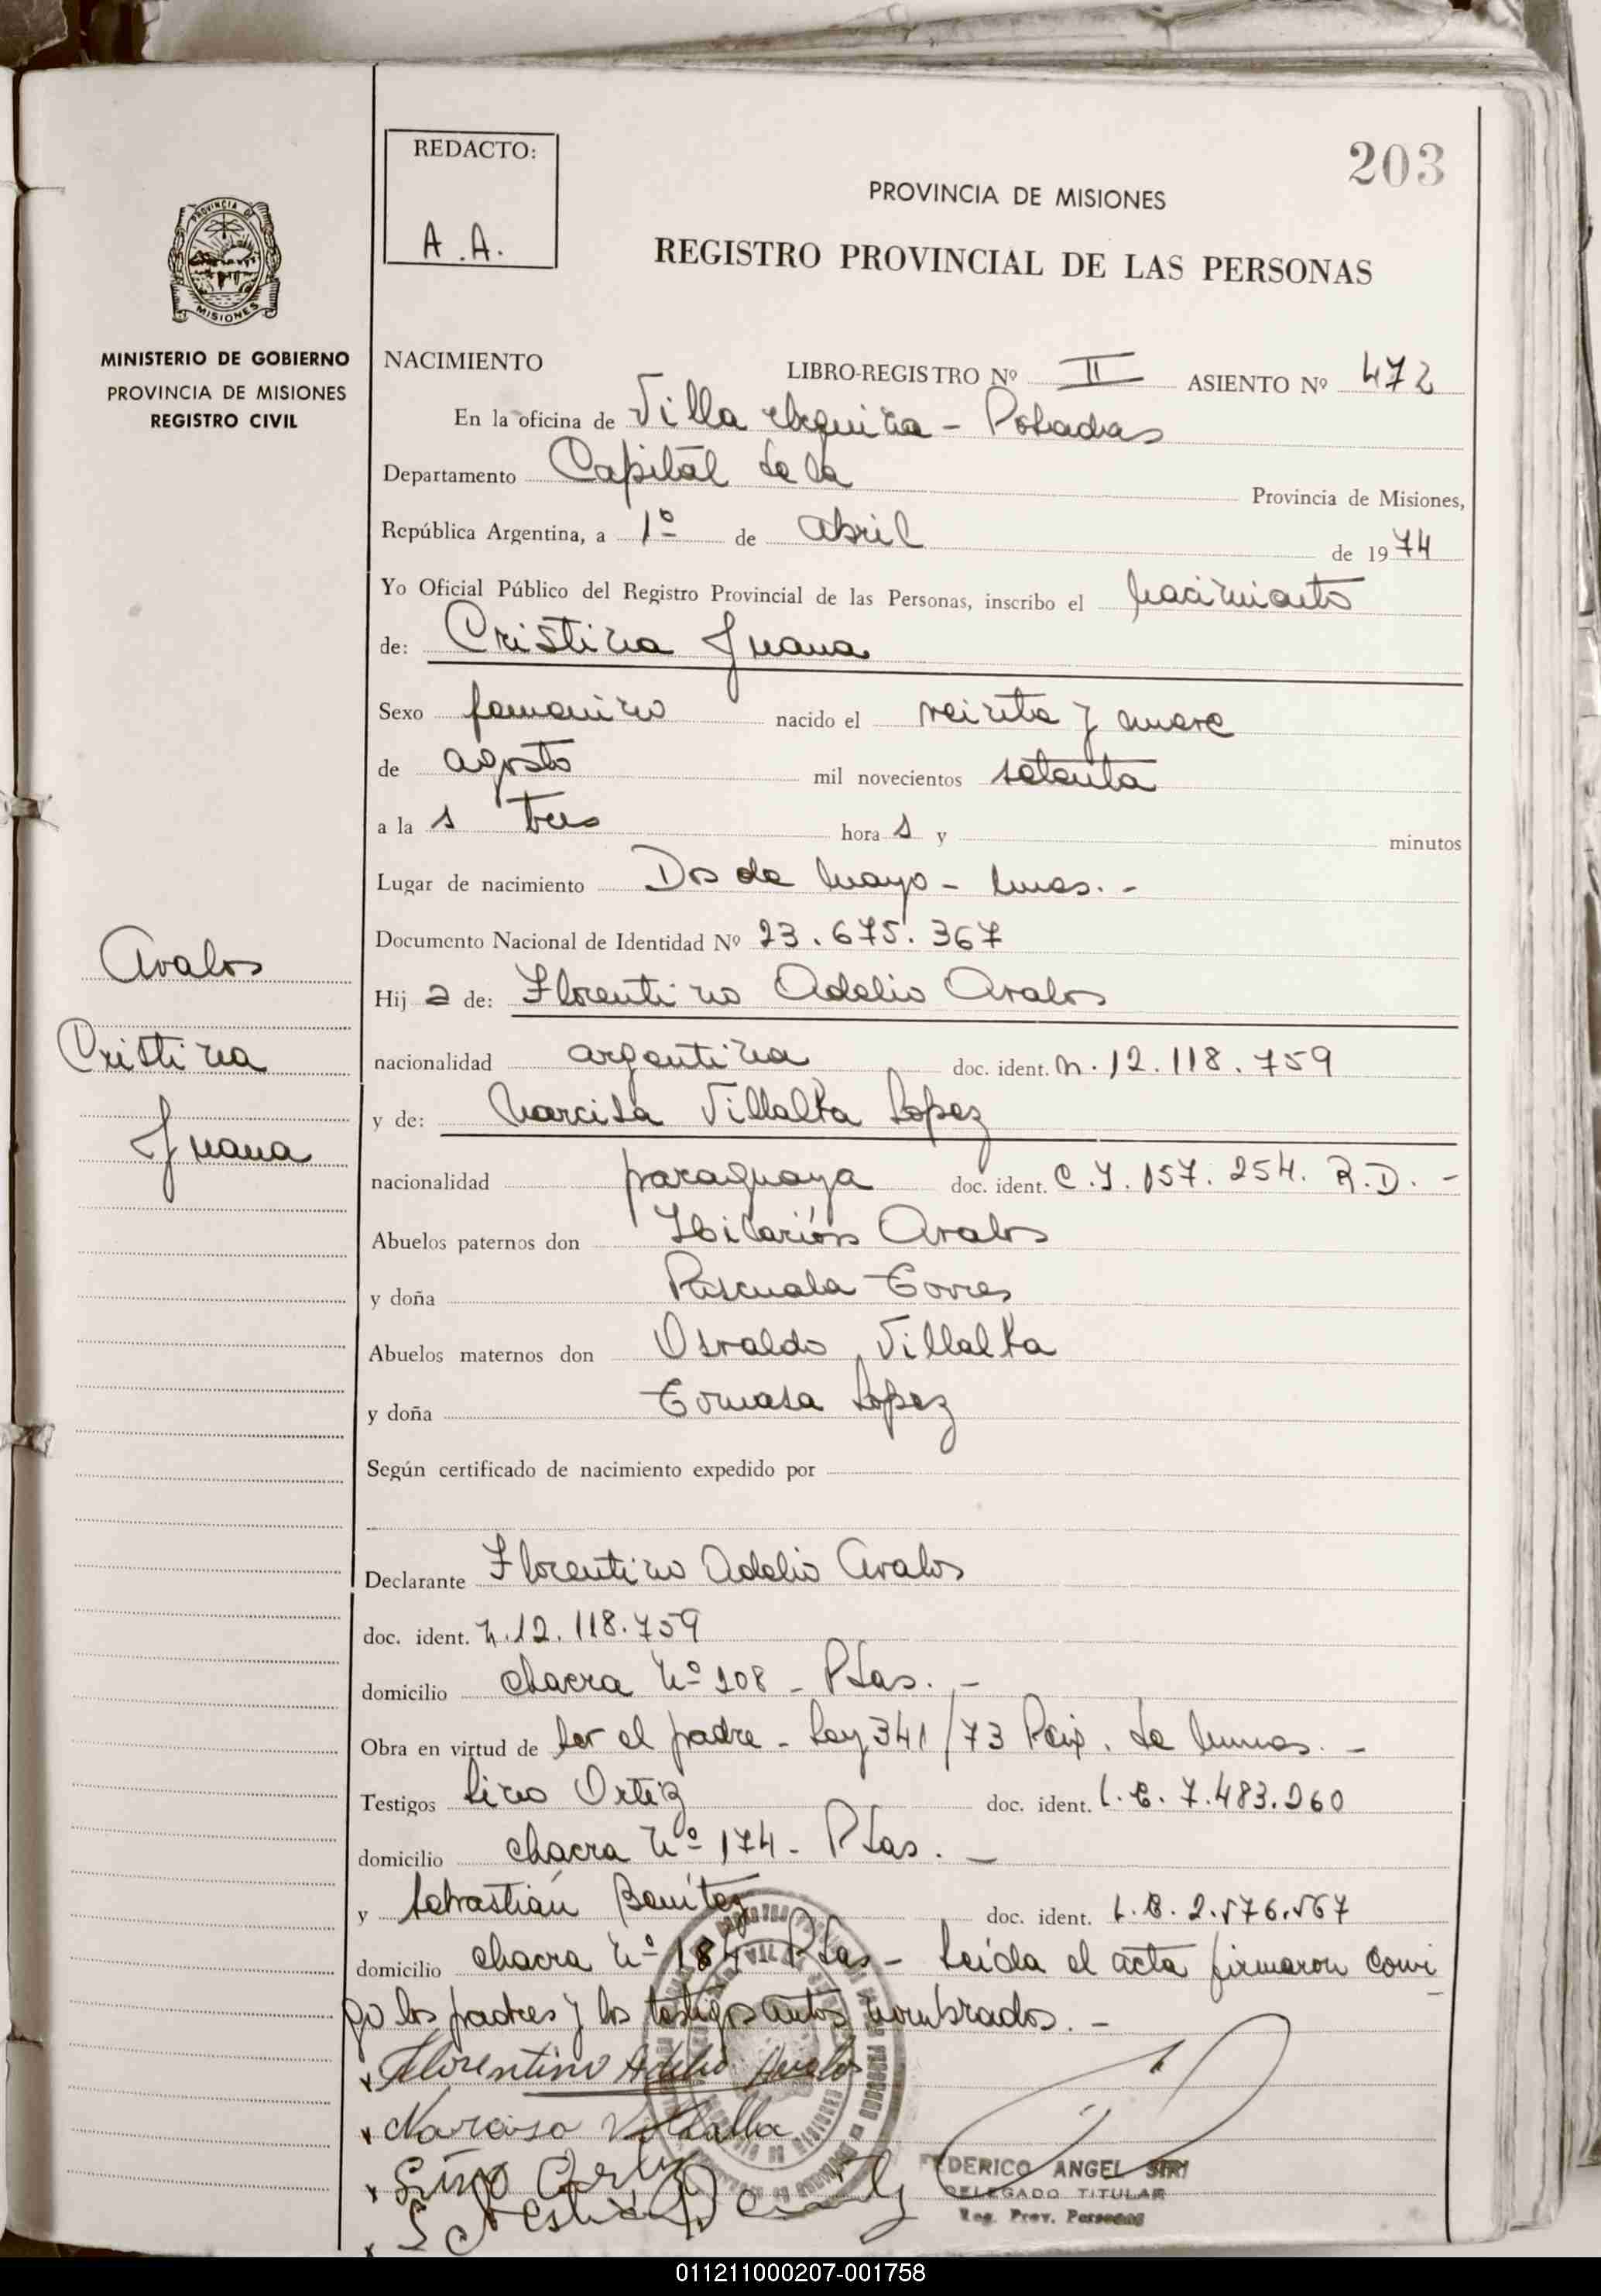 203
REDACTO:
A.A.
PROVINCIA DE MISIONES
REGISTRO PROVINCIAL DE LAS PERSONAS
PROVINCIA DE
MISIONES
MINISTERIO DE GOBIERNO
PROVINCIA DE MISIONES
REGISTRO CIVIL
NACIMIENTO LIBRO-REGISTRO Nº II ASIENTO Nº 472
En la oficina de Villa Urquiza - Posadas
Departamento Capital de la Provincia de Misiones,
República Argentina, a 1º de abril de 1974
Yo Oficial Público del Registro Provincial de las Personas, inscribo el nacimiento
de: Cristina Juana
Sexo femenino nacido el veinte y nueve
de agosto mil novecientos setenta
a las tres horas y minutos
Lugar de nacimiento Dos de Mayo - Mnes. -
Documento Nacional de Identidad Nº 23.675.367
Hija de: Florentino Adelio Avalos
nacionalidad argentina doc. ident. M. 12.118.759
y de: Narcisa Villalba Lopez
nacionalidad paraguaya doc. ident. C.I. 157.254. R.D. -
Abuelos paternos don Hilarión Avalos
y doña Pascuala Torres
Abuelos maternos don Osvaldo Villalba
y doña Tomasa Lopez
Según certificado de nacimiento expedido por
Declarante Florentino Adelio Avalos
doc. ident. M. 12.118.759
domicilio chacra Nº 108 - Pdas. -
Obra en virtud de ser el padre - Ley 341/73 Pcia. de Mnes. -
Testigos Lino Ortiz doc. ident. L.E. 7.483.260
domicilio chacra Nº 174 - Pdas. -
y Sebastián Benítez doc. ident. L.E. 2.576.567
domicilio chacra Nº 184 Pdas - Leída el acta firmaron conmi
go los padres y los testigos antes nombrados. -
Avalos
Cristina
Juana
x Florentino Adelio Avalos
x Narcisa Villalba
x Lino Ortiz
x Sebastian Benitez
FEDERICO ANGEL SIRI
DELEGADO TITULAR
Reg. Prov. Personas
011211000207-001758